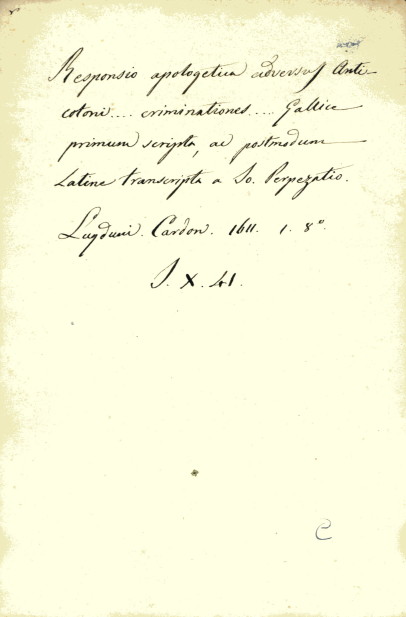 Responsio apologetica adversus Anti-
cotoni.... criminationes.... Gallice
primum scripta, ac postmodum
Latine transcripta a Jo. Perpezatio.
Lugduni. Cardon. 1611. 1. 8°.
J. X. 41.
C